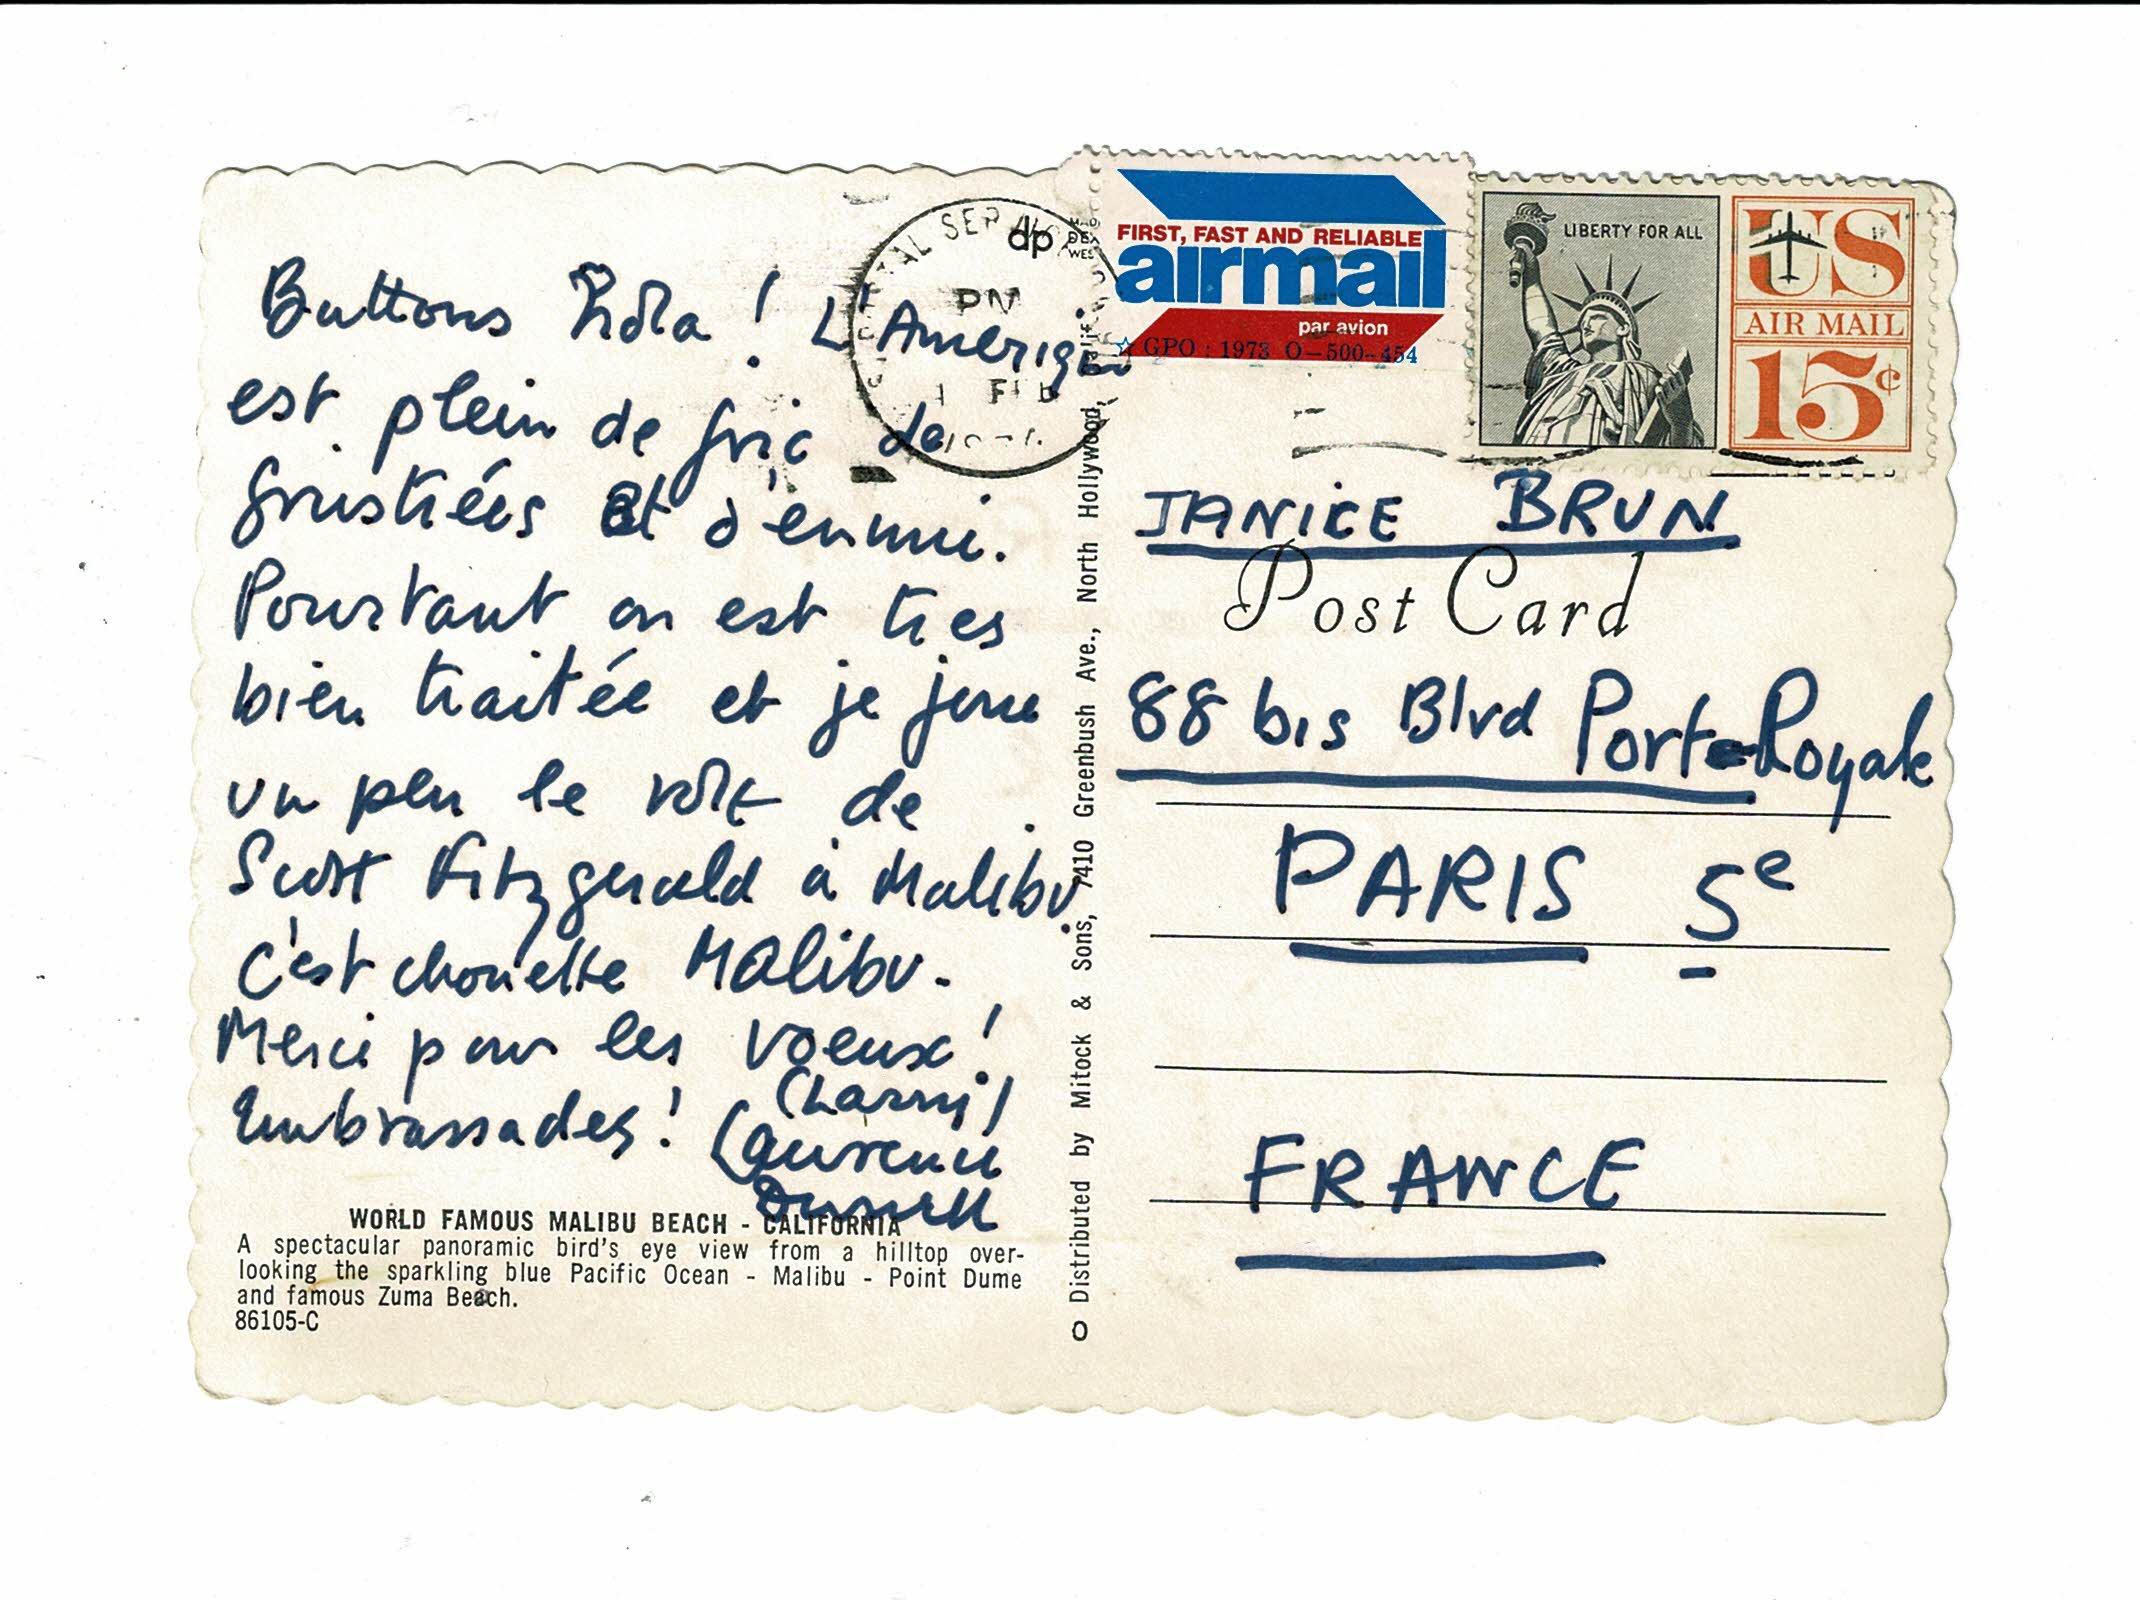 Buttons hola! L'Amerique
est plein de fric de
frustrées et d'ennui.
Pourtant on est tres
bien traitée et je joue
un peu le rôle de
Scott Fitzgerald à Malibu.
C'est chouette Malibu.
Merci pour les voeux!
Embrassades! (Larry)
Laurence
WORLD FAMOUS MALIBU BEACH - CALIFORNIA
A spectacular panoramic bird's eye view from a hilltop over-
looking the sparkling blue Pacific Ocean - Malibu - Point Dume
and famous Zuma Beach.
86105-C
O Distributed by Mitock & Sons, 7410 Greenbush Ave., North Hollywood, Calif.
dp
PM
FEB
FIRST, FAST AND RELIABLE
airmail
par avion
☆ GPO : 1973 O-500-454
LIBERTY FOR ALL
US
AIR MAIL
15¢
JANICE BRUN
Post Card
88 bis Blvd Port-Royale
PARIS 5e
FRANCE